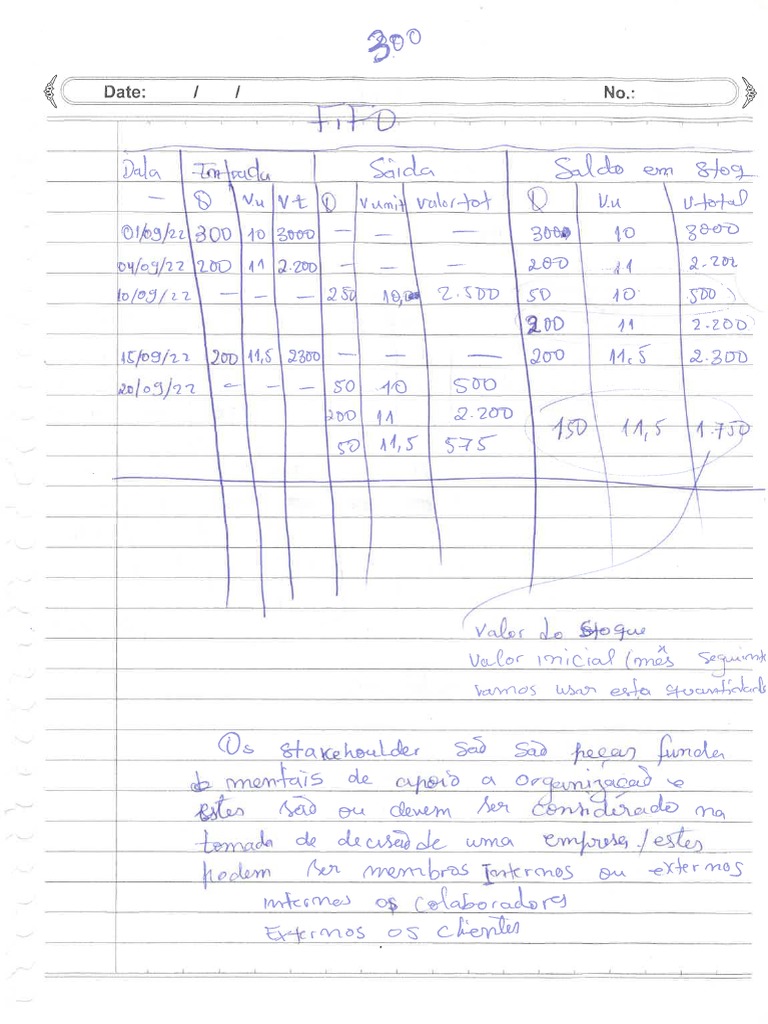 300
Date: / / No.:
FIFO
Data Entrada Sáida Saldo em Stoq
— Q V.u V t Q V unit valor tot Q V.u v total
01/09/22 300 10 3000 — — — 300 10 3000
04/09/22 200 11 2.200 — — — 200 11 2.200
10/09/22 — — — 250 10,0 2.500 50 10 500
200 11 2.200
15/09/22 200 11,5 2300 — — — 200 11.5 2.300
20/09/22 - - - 50 10 500
200 11 2.200 150 11,5 1.750
50 11,5 575
Valor do Stoque
Valor inicial (mês seguint
vamos usar esta quantidade
Os stakehoulder são são peças funda
mentais de apoio a organização e
estes são ou devem ser considerado na
tomada de decisão de uma empresa/estes
podem ser membros Internos ou externos
internos os colaboradores
Externos os clientes